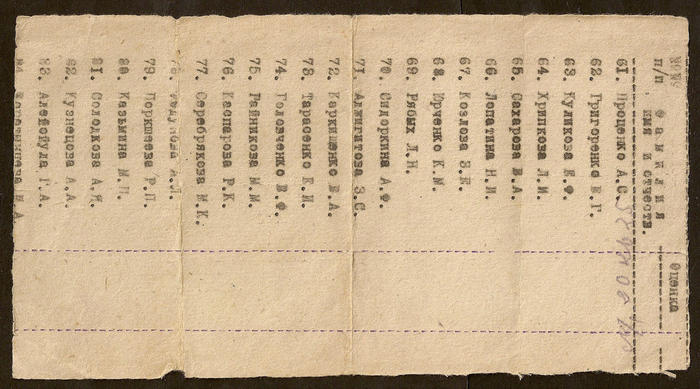 №№ Фамилия Оценка
п/п имя и отчеств.
61. Проценко А.С.
62. Григоренко Е.Г.
63. Куликова Е.Ф.
64. Хрипкова Л.И.
65. Сахарова В.А.
66. Лопатина Н.И.
67. Козлова З.Е.
68. Юрченко К.М.
69. Рябых Л.И.
70. Сидоркина А.Ф.
71. Аджигитова З.С.
72. Каркищенко В.А.
73. Тарасенко Е.И.
74. Головченко В.Ф.
75. Райникова М.М.
76. Каспарова Р.К.
77. Серебрякова М.К.
78. А.Л.
79. Р.П.
80. Казьмина М.П.
81. Солодкова А.Я.
82. Кузнецова А.А.
83. Г.А.
84. М.А.